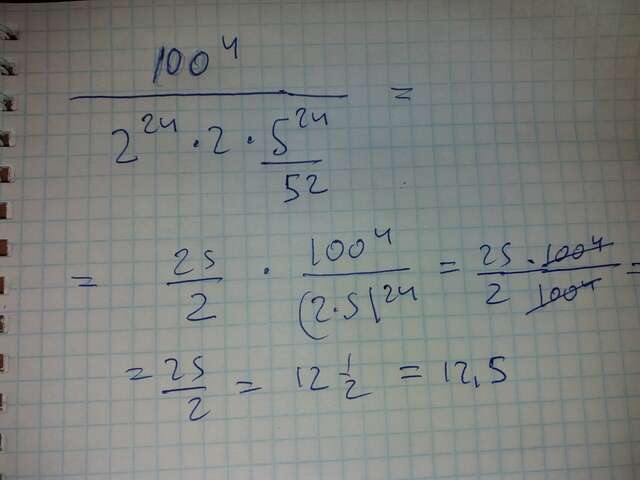 100⁴
2²⁴ · 2 · 5²⁴ =
5²
= 25 · 100⁴ = 25 · 100⁴ =
2 (2·5)²⁴ 2 100⁴
= 25/2 = 12 1/2 = 12,5